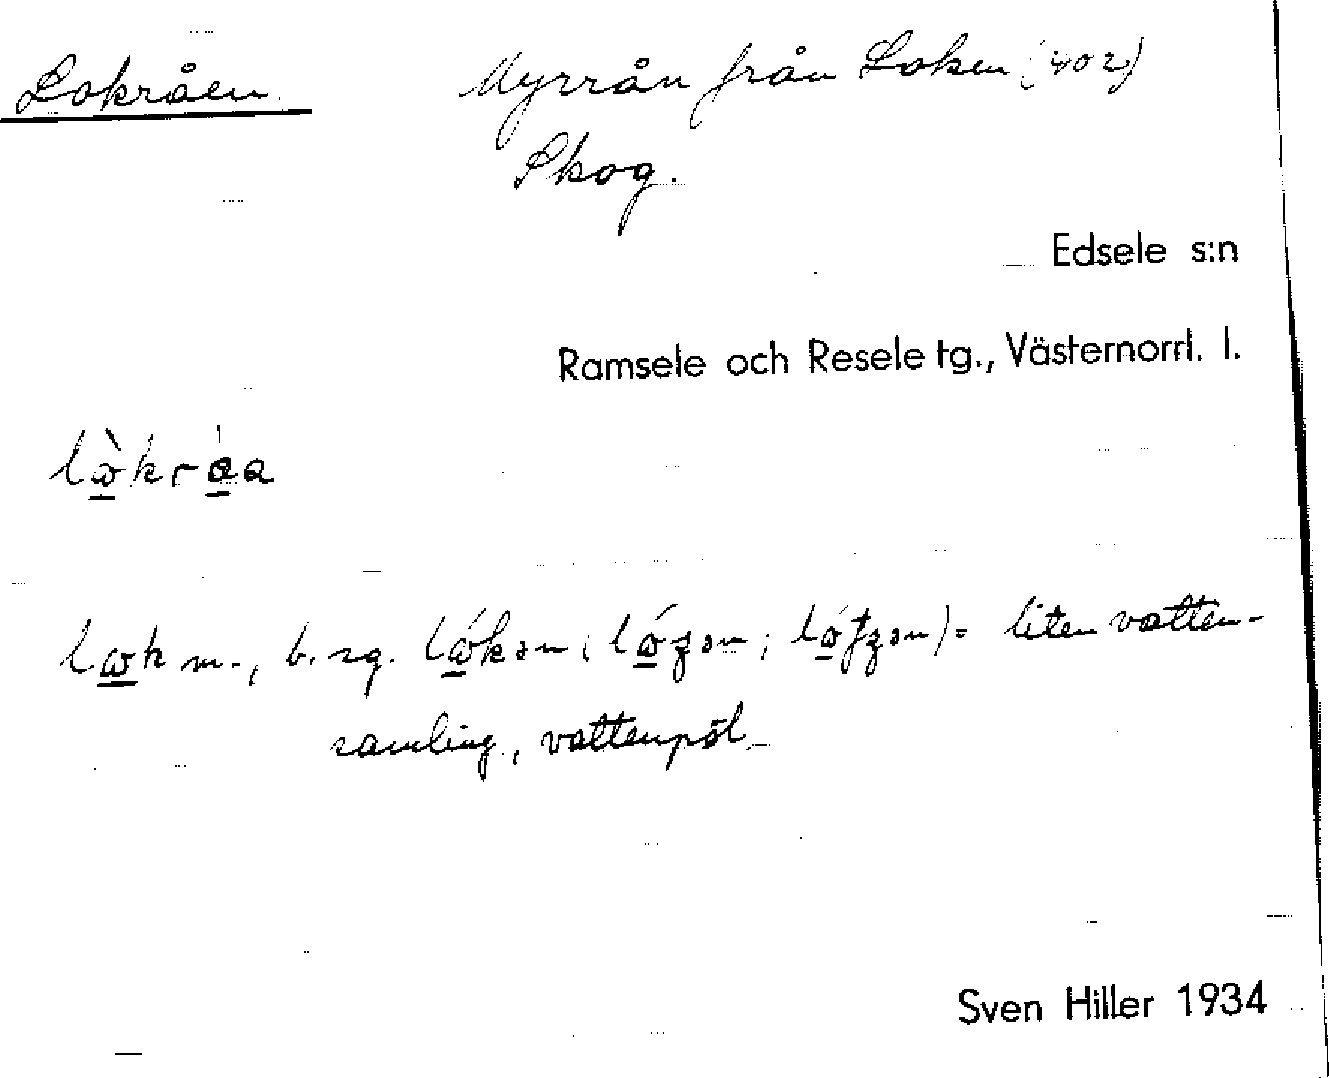 Lokråen
Myrrån från Loken (402)
Skog.
Edsele s:n
Ramsele och Resele tg., Västernorrl. l.
m., b. sg.
= liten vatten-
samling, vattenpöl
Sven Hiller 1934